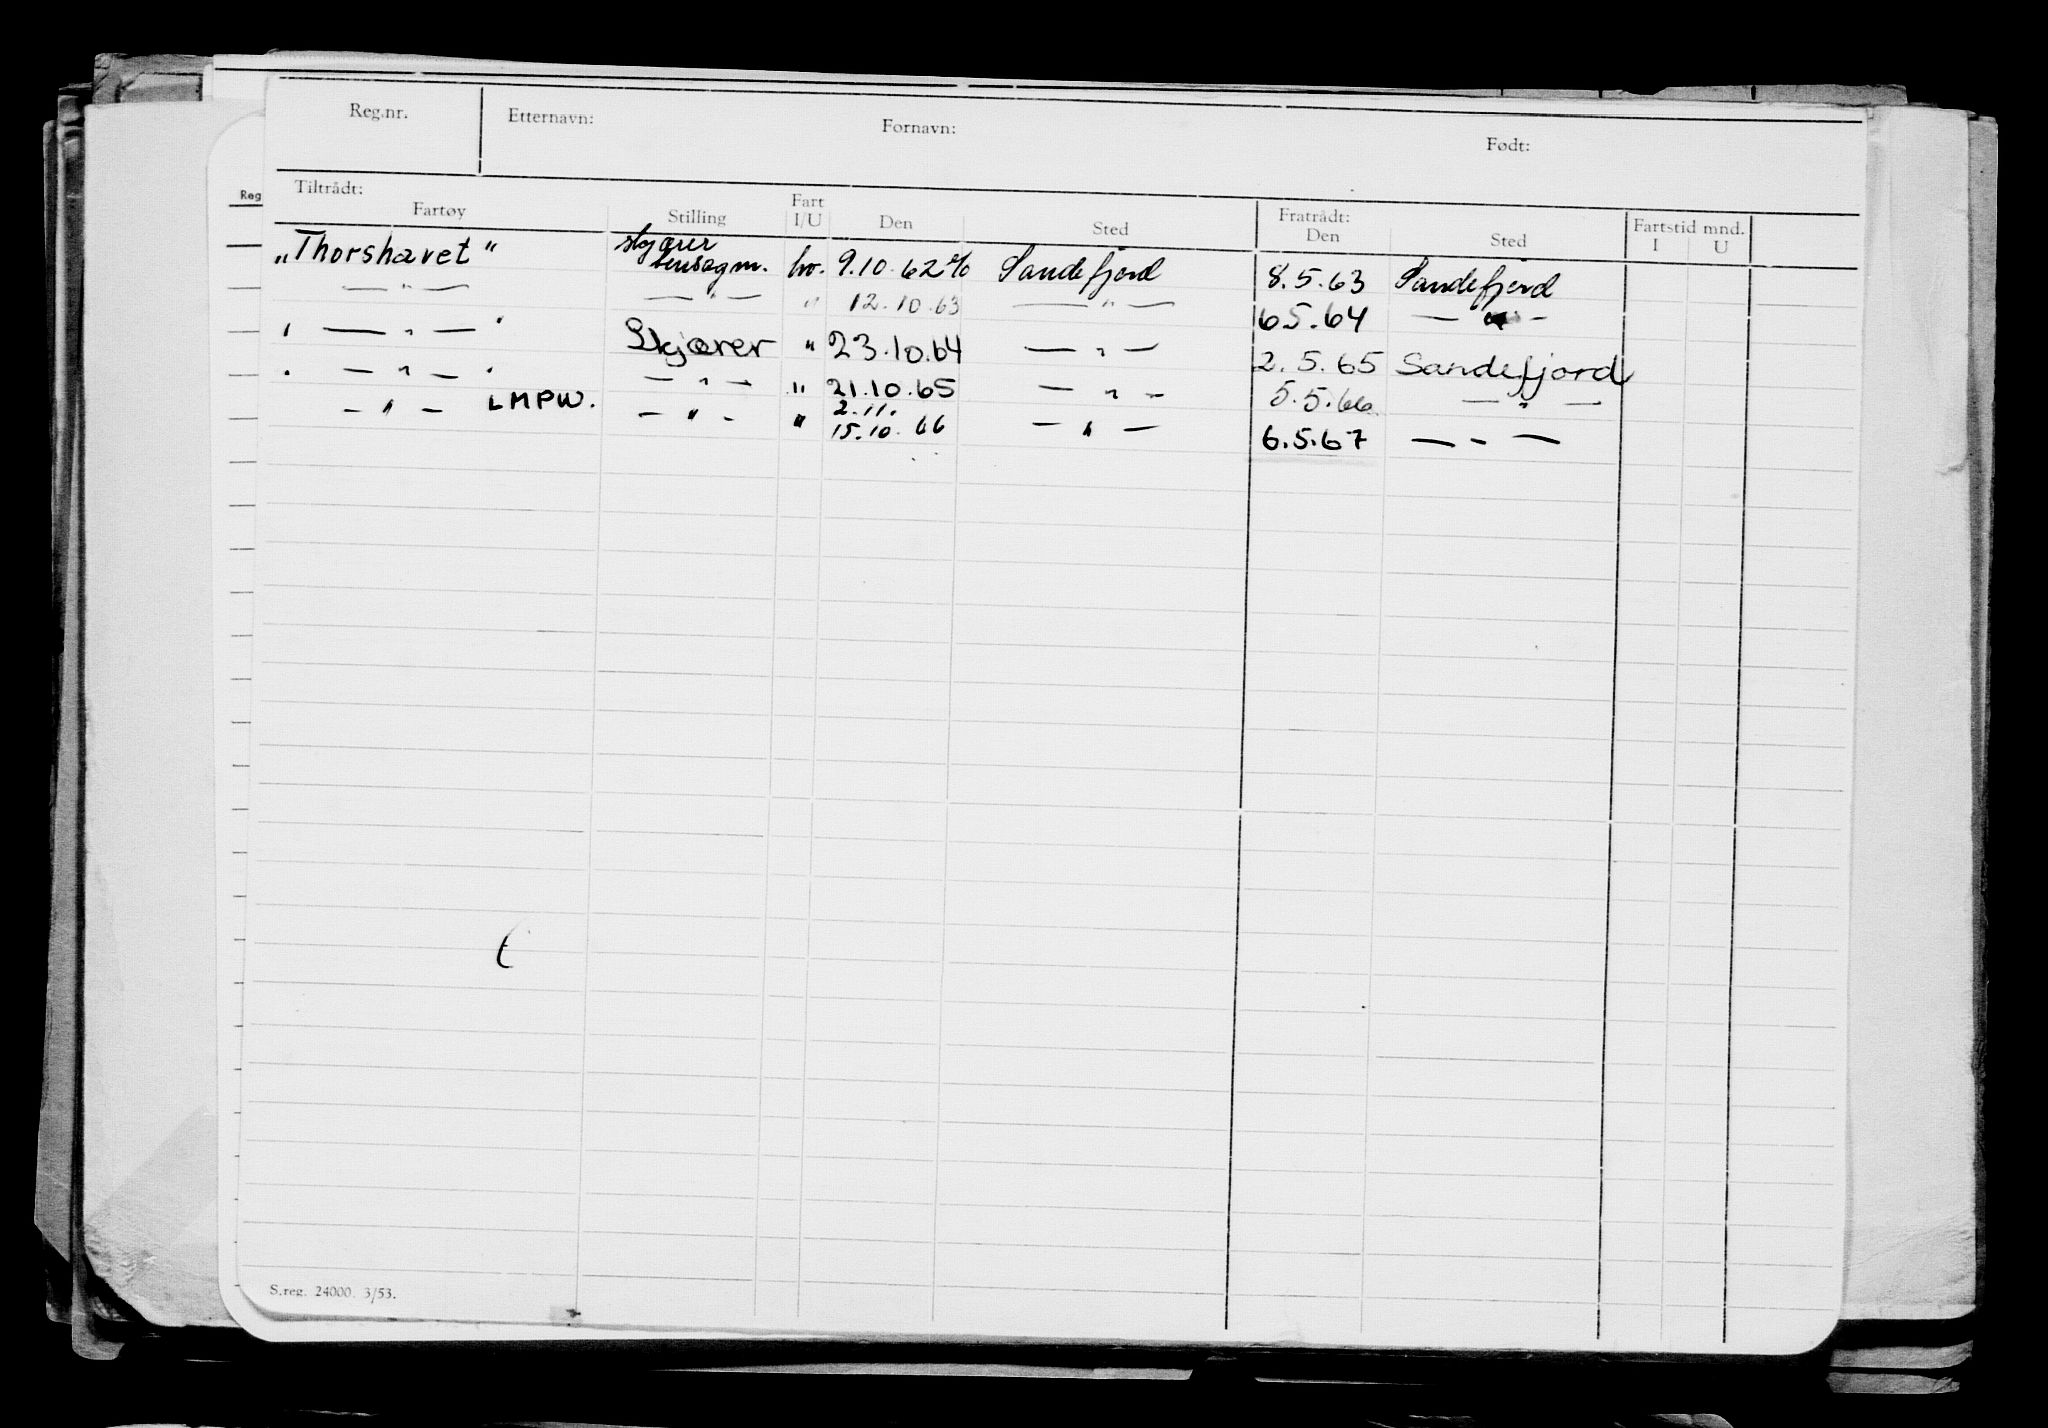 Reg.nr. Etternavn: Fornavn: Født:
Reg
Tiltrådt: Fratrådt:
Fartøy Stilling Fart I/U Den Sted Den Sted Fartstid mnd. I U
„Thorshavet" skjærer bensagm. hv. 9.10.62 Sandefjord 8.5.63 Sandefjord
— " — — " — " 12.10.63 — " — 6.5.64 — " —
" — " — " Skjærer " 23.10.64 — " — 2.5.65 Sandefjord
" — " — " — " — " 21.10.65 — " — 5.5.66 — " —
— " — LMPW. — " — " 2.11. 15.10.66 — " — 6.5.67 — " —
S.reg. 24000. 3/53.